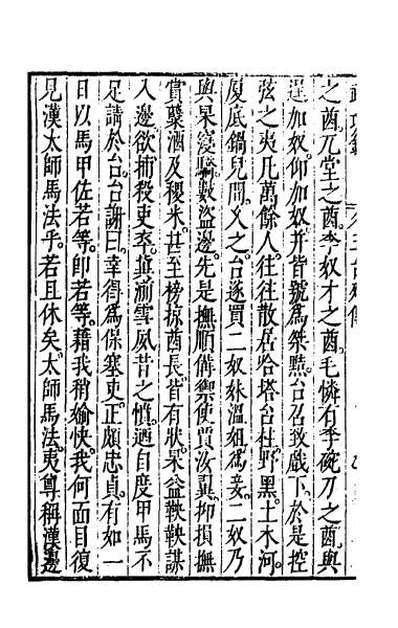 之酋兀堂之酋李奴才之酋毛憐石李碗刀之酋與
逞加奴仰加奴并皆號為桀黠台召致戲下於是控
弦之夷几萬餘人往往散居哈塔台柱野黑土木河
厦底鍋兒間久之台逐買二奴妹溫姐為妾二奴乃
與杲寖驕數盜邊先是撫順備禦使賈汝翼抑損撫
賞襲酒及稷米甚至榜掠酋長皆有狀杲益鞅鞅謀
入邊欲捕殺吏卒真湔雪夙昔之憤過自度甲馬不
足請於台台謝曰幸得為保塞吏正頗忠貞有如一
日以馬甲佐若等即若等藉我稍媮快我何面目復
見漢太師馬法乎若且休矣太師馬法夷尊稱漢邊